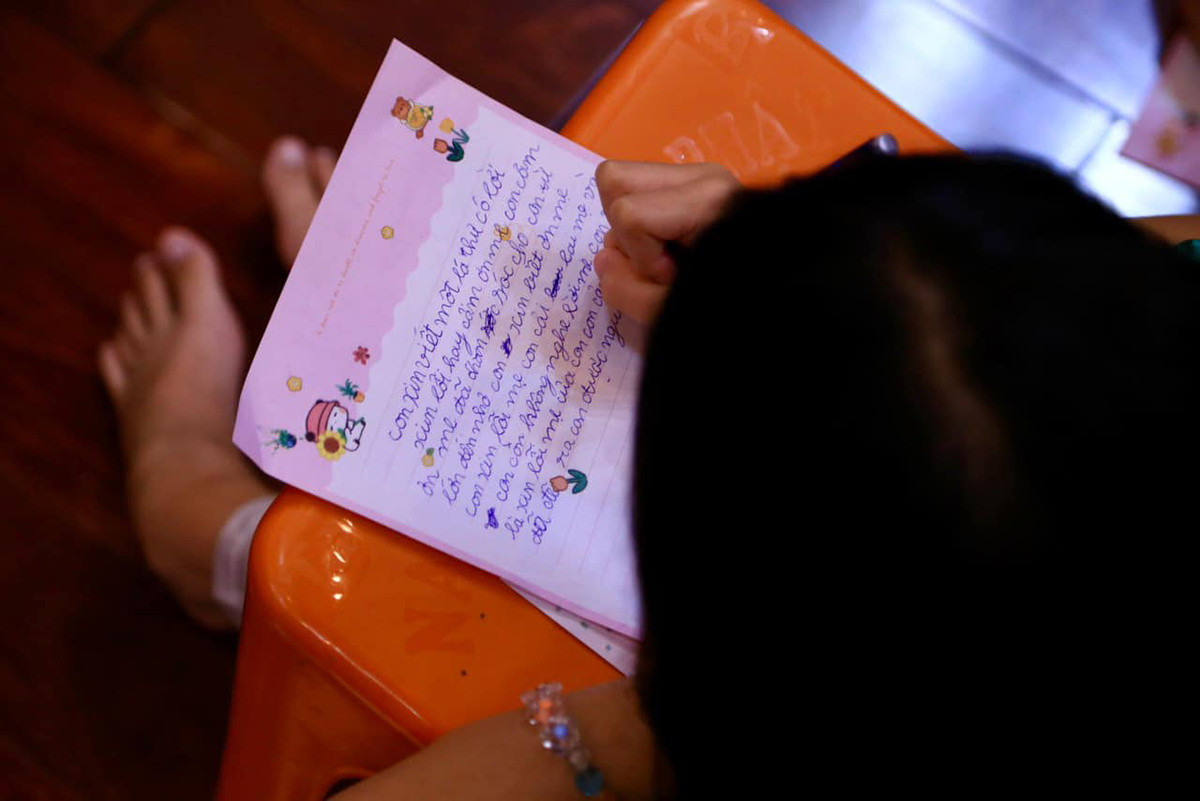 con xin viết một lá thư có lời
xin lỗi hay cảm ơn mẹ con cảm
ơn mẹ đã chăm sóc cho con từ
lớn đến nhỏ con xin biết ơn mẹ
con xin lỗi mẹ con cãi mẹ vì
con còn không nghe lời mẹ con
là xin lỗi mẹ của con con
đã đẻ ra con được